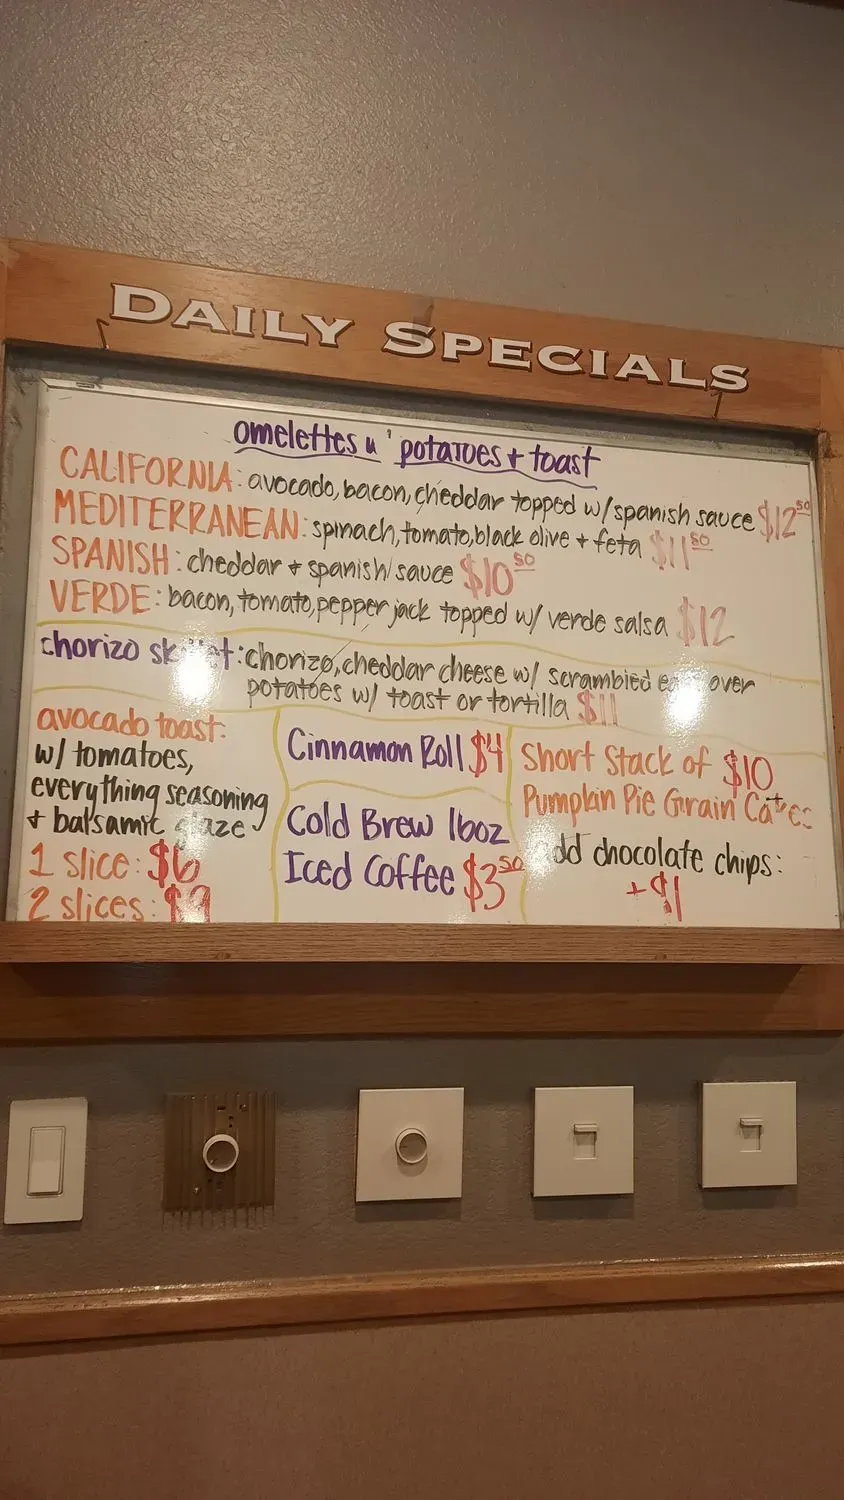 DAILY SPECIALS
omelettes w' potatoes + toast
CALIFORNIA: avocado, bacon, cheddar topped w/ spanish sauce $12 50
MEDITERRANEAN: spinach, tomato, black olive + feta $11 50
SPANISH: cheddar + spanish sauce $10 50
VERDE: bacon, tomato, pepper jack topped w/ verde salsa $12
chorizo : chorizo, cheddar cheese w/ scrambled over
potatoes w/ toast or tortilla $11
avocado toast:
w/ tomatoes,
everything seasoning
+ balsamic glaze
1 slice: $6
2 slices: $9
Cinnamon Roll $4
Cold Brew 16oz
Iced Coffee $3 50
Short Stack of $10
Pumpkin Pie Grain Cakes
add chocolate chips:
+$1